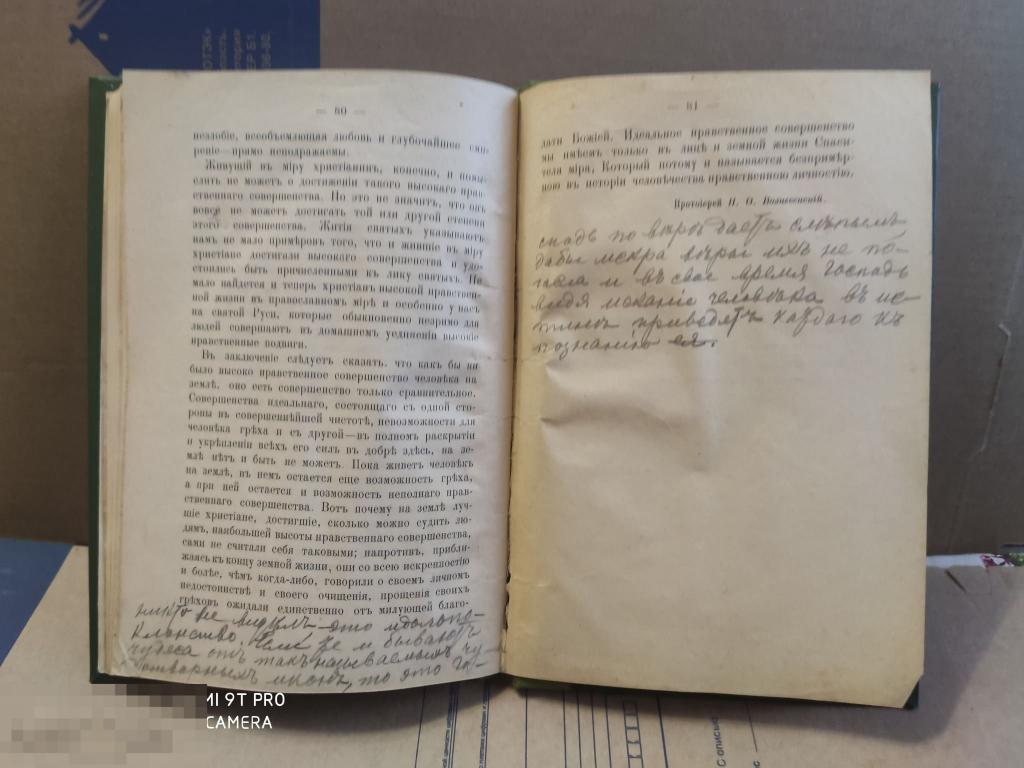 — 80 —
незлобіе, всеобъемлющая любовь и глубочайшее сми-
реніе—прямо неподражаемы.
Живущій въ міру христіанинъ, конечно, и помы-
слить не можетъ о достиженіи такого высокаго нрав-
ственнаго совершенства. Но это не значитъ, что онъ
вовсе не можетъ достигать той или другой степени
этого совершенства. Житія святыхъ указываютъ
намъ не мало примѣровъ того, что и жившіе въ міру
христіане достигали высокаго совершенства и удо-
стоились быть причисленными къ лику святыхъ. Не
мало найдется и теперь христіанъ высокой нравствен-
ной жизни въ православномъ мірѣ и особенно у насъ
на святой Руси, которые обыкновенно незримо для
людей совершаютъ въ домашнемъ уединеніи высокіе
нравственные подвиги.
Въ заключеніе слѣдуетъ сказать, что какъ бы ни
было высоко нравственное совершенство человѣка на
землѣ, оно есть совершенство только сравнительное.
Совершенства идеальнаго, состоящаго съ одной сто-
роны въ совершеннѣйшей чистотѣ, невозможности для
человѣка грѣха и съ другой—въ полномъ раскрытіи
и укрѣпленіи всѣхъ его силъ въ добрѣ здѣсь, на зе-
млѣ нѣтъ и быть не можетъ. Пока живетъ человѣкъ
на землѣ, въ немъ остается еще возможность грѣха,
а при ней остается и возможность неполнаго нрав-
ственнаго совершенства. Вотъ почему на землѣ луч-
шіе христіане, достигшіе, сколько можно судить лю-
дямъ, наибольшей высоты нравственнаго совершенства,
сами не считали себя таковыми; напротивъ, прибли-
жаясь къ концу земной жизни, они со всею искренностію
и болѣе, чѣмъ когда-либо, говорили о своемъ личномъ
недостоинствѣ и своего очищенія, прощенія своихъ
грѣховъ ожидали единственно отъ милующей благо-
никто не видимъ—это идолопо-
клонство. Если же и бываютъ
чудеса отъ такъ называемыхъ чу-
дотворныхъ иконъ, то это Го-
— 81 —
дати Божіей. Идеальное нравственное совершенство
мы имѣемъ только въ лицѣ и земной жизни Спаси-
теля міра, Который потому и называется безпримѣр-
ною въ исторіи человѣчества нравственною личностію.
Протоіерей П. О.
сподь по вѣрѣ даетъ слѣпымъ
дабы искра вѣры ихъ не по-
гасла и въ свое время Господь
видя исканіе человѣка въ ис-
тинѣ приводятъ каждаго къ
познанію ея.
MI 9T PRO
CAMERA